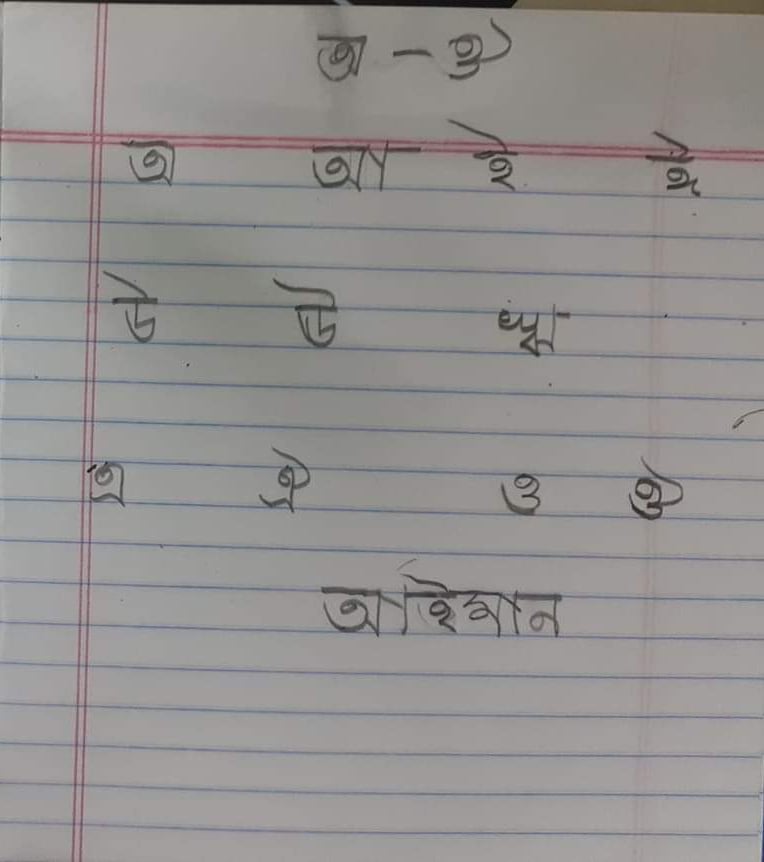 অ - ঔ
অ আ ই ঈ
উ ঊ ঋ
এ ঐ ও ঔ
আইমান